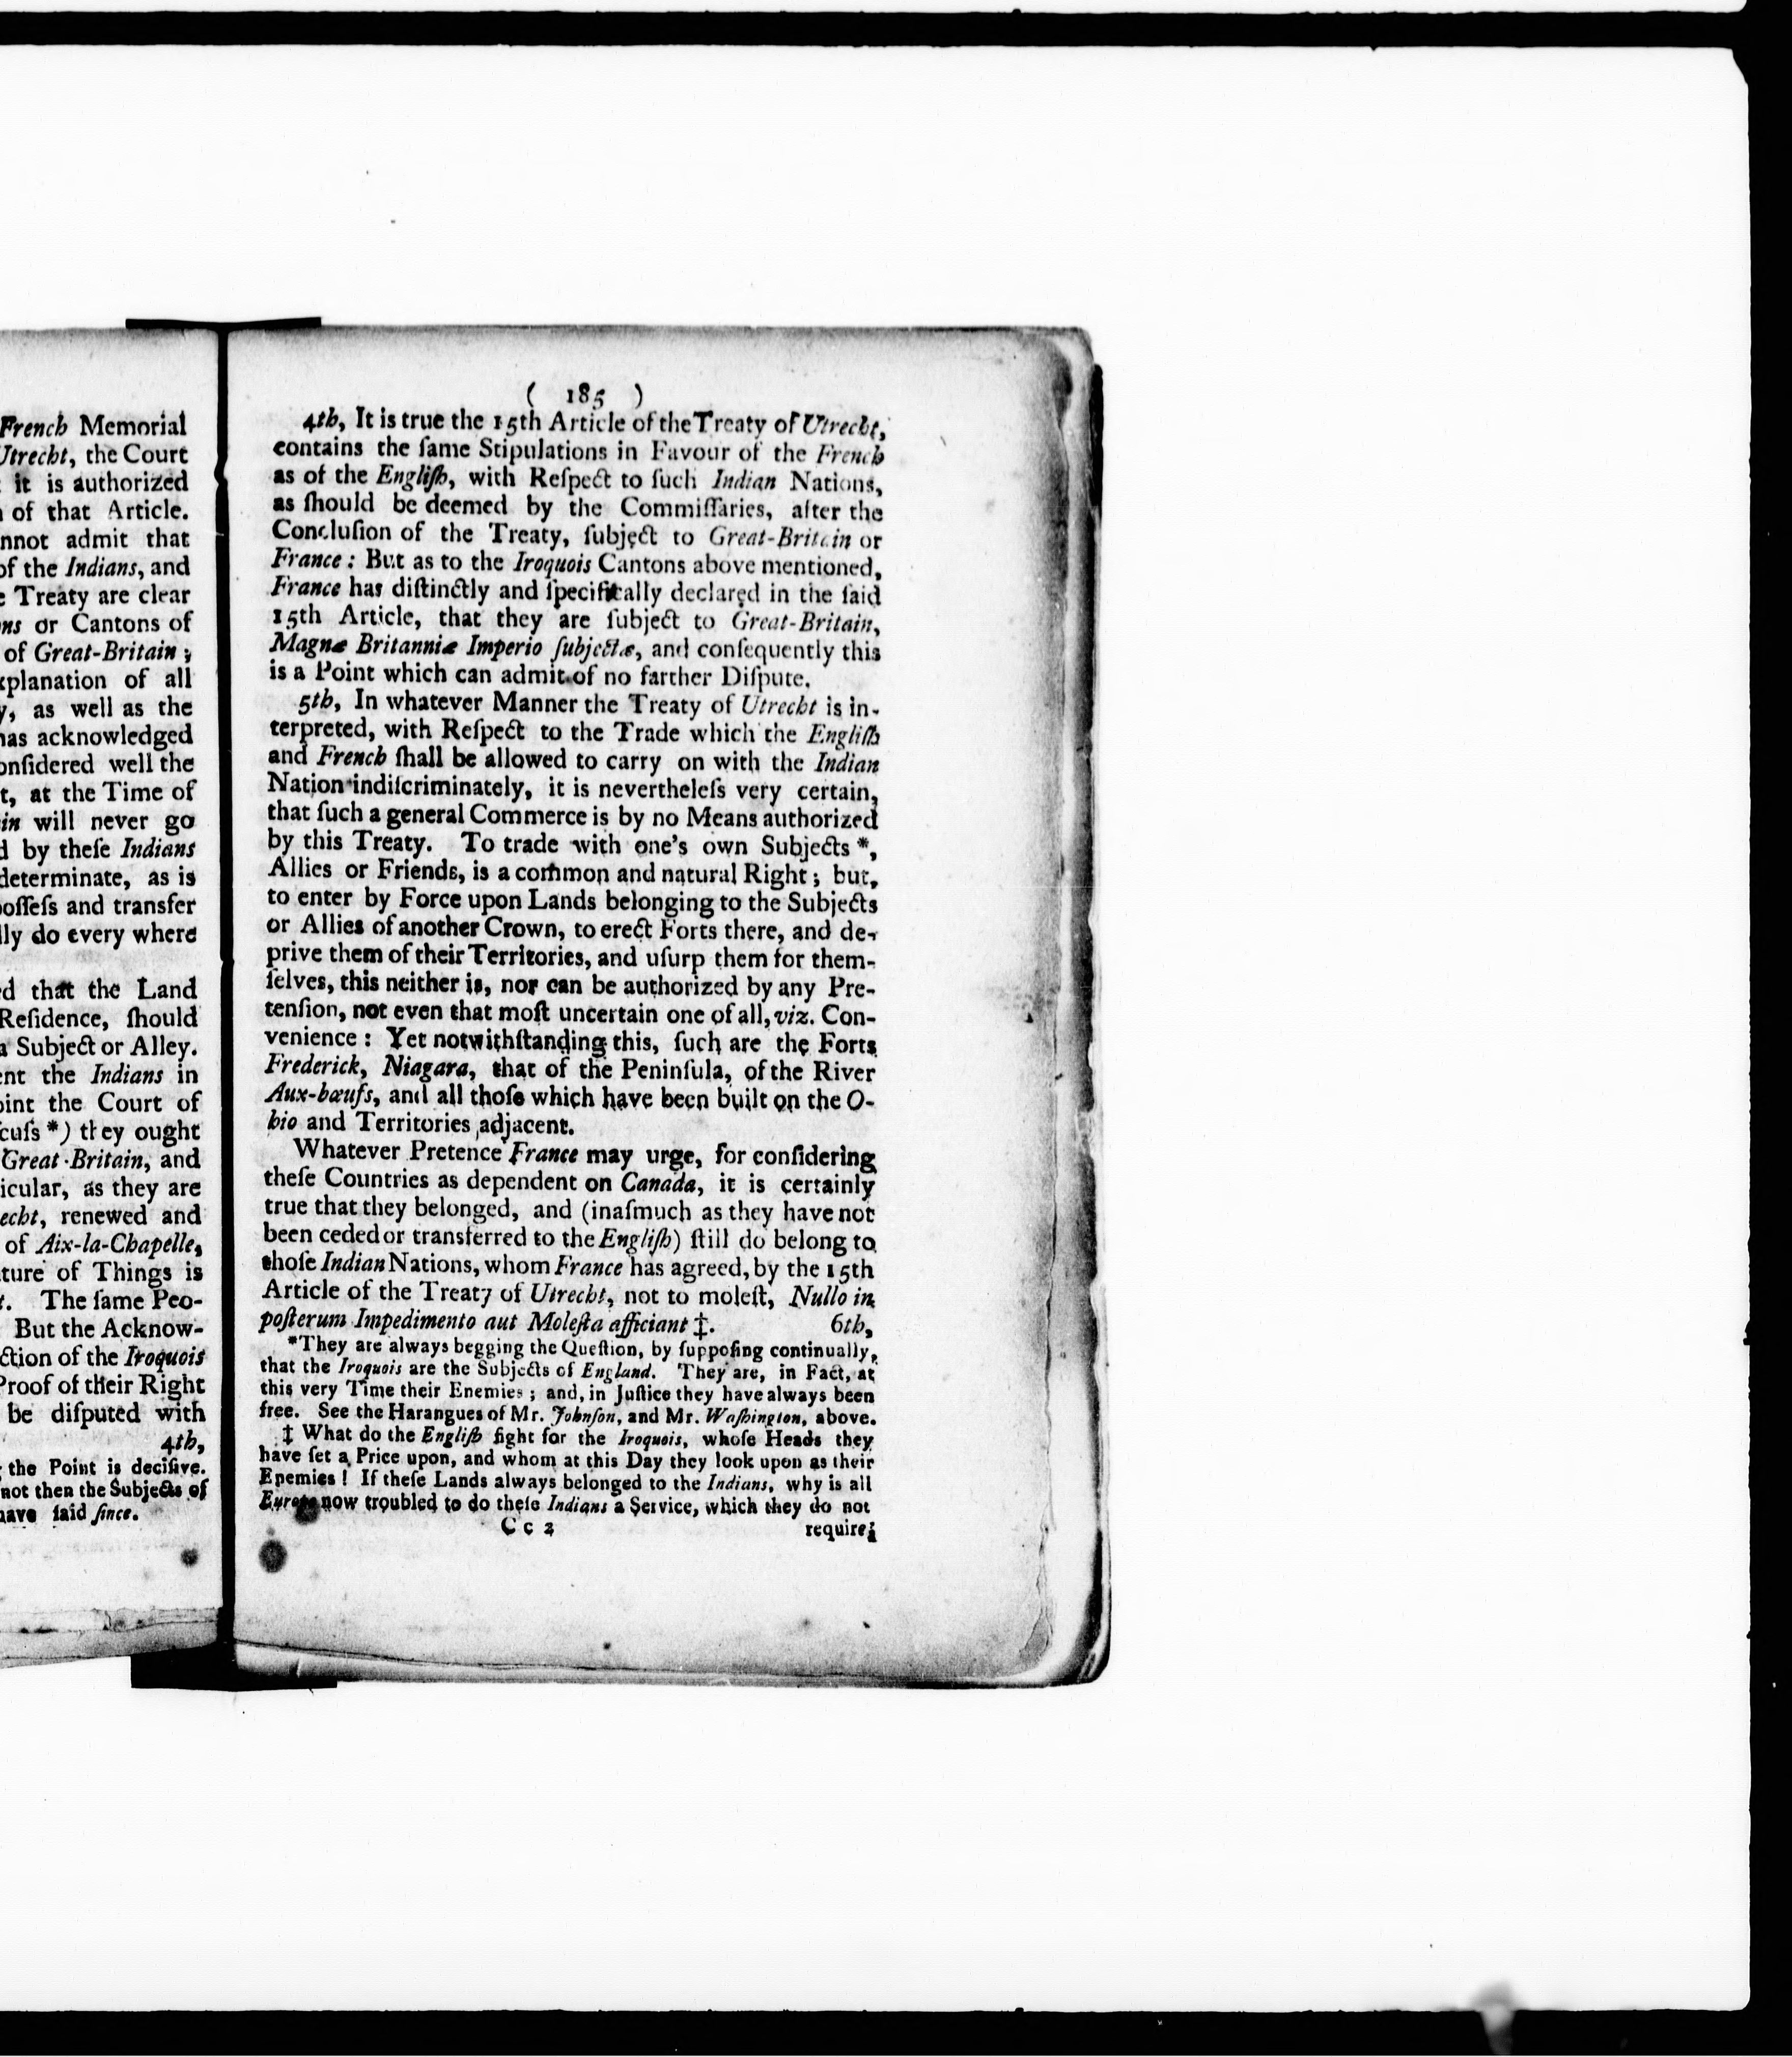 French Memorial
Utrecht, the Court
it is authorized
of that Article.
nnot admit that
of the Indians, and
Treaty are clear
ns or Cantons of
of Great-Britain;
xplanation of all
y, as well as the
has acknowledged
onſidered well the
t, at the Time of
in will never go
d by theſe Indians
determinate, as is
oſſeſs and transfer
lly do every where
d that the Land
Reſidence, ſhould
a Subject or Alley.
ent the Indians in
oint the Court of
cuſs *) they ought
Great-Britain, and
icular, as they are
echt, renewed and
of Aix-la-Chapelle,
ture of Things is
. The ſame Peo-
But the Acknow-
ction of the Iroquois
Proof of their Right
be diſputed with
4th,
the Point is deciſive.
not then the Subjects of
have ſaid ſince.
( 185 )
4th, It is true the 15th Article of the Treaty of Utrecht,
contains the ſame Stipulations in Favour of the French
as of the Engliſh, with Reſpect to ſuch Indian Nations,
as ſhould be deemed by the Commiſſaries, after the
Concluſion of the Treaty, ſubject to Great-Britain or
France: But as to the Iroquois Cantons above mentioned,
France has diſtinctly and ſpecifically declared in the ſaid
15th Article, that they are ſubject to Great-Britain,
Magnæ Britanniæ Imperio ſubjectæ, and conſequently this
is a Point which can admit of no farther Diſpute.
5th, In whatever Manner the Treaty of Utrecht is in-
terpreted, with Reſpect to the Trade which the Engliſh
and French ſhall be allowed to carry on with the Indian
Nation indiſcriminately, it is nevertheleſs very certain,
that ſuch a general Commerce is by no Means authorized
by this Treaty. To trade with one's own Subjects *,
Allies or Friends, is a common and natural Right; but,
to enter by Force upon Lands belonging to the Subjects
or Allies of another Crown, to erect Forts there, and de-
prive them of their Territories, and uſurp them for them-
ſelves, this neither is, nor can be authorized by any Pre-
tenſion, not even that moſt uncertain one of all, viz. Con-
venience: Yet notwithſtanding this, ſuch are the Forts
Frederick, Niagara, that of the Peninſula, of the River
Aux-bœufs, and all thoſe which have been built on the O-
hio and Territories adjacent.
Whatever Pretence France may urge, for conſidering
theſe Countries as dependent on Canada, it is certainly
true that they belonged, and (inaſmuch as they have not
been ceded or transferred to the Engliſh) ſtill do belong to
thoſe Indian Nations, whom France has agreed, by the 15th
Article of the Treaty of Utrecht, not to moleſt, Nullo in
poſterum Impedimento aut Moleſta afficiant ‡. 6th,
*They are always begging the Queſtion, by ſuppoſing continually,
that the Iroquois are the Subjects of England. They are, in Fact, at
this very Time their Enemies; and, in Juſtice they have always been
free. See the Harangues of Mr. Johnſon, and Mr. Waſhington, above.
‡ What do the Engliſh fight for the Iroquois, whoſe Heads they
have ſet a Price upon, and whom at this Day they look upon as their
Enemies! If theſe Lands always belonged to the Indians, why is all
Europe now troubled to do theſe Indians a Service, which they do not
C c 2 require;